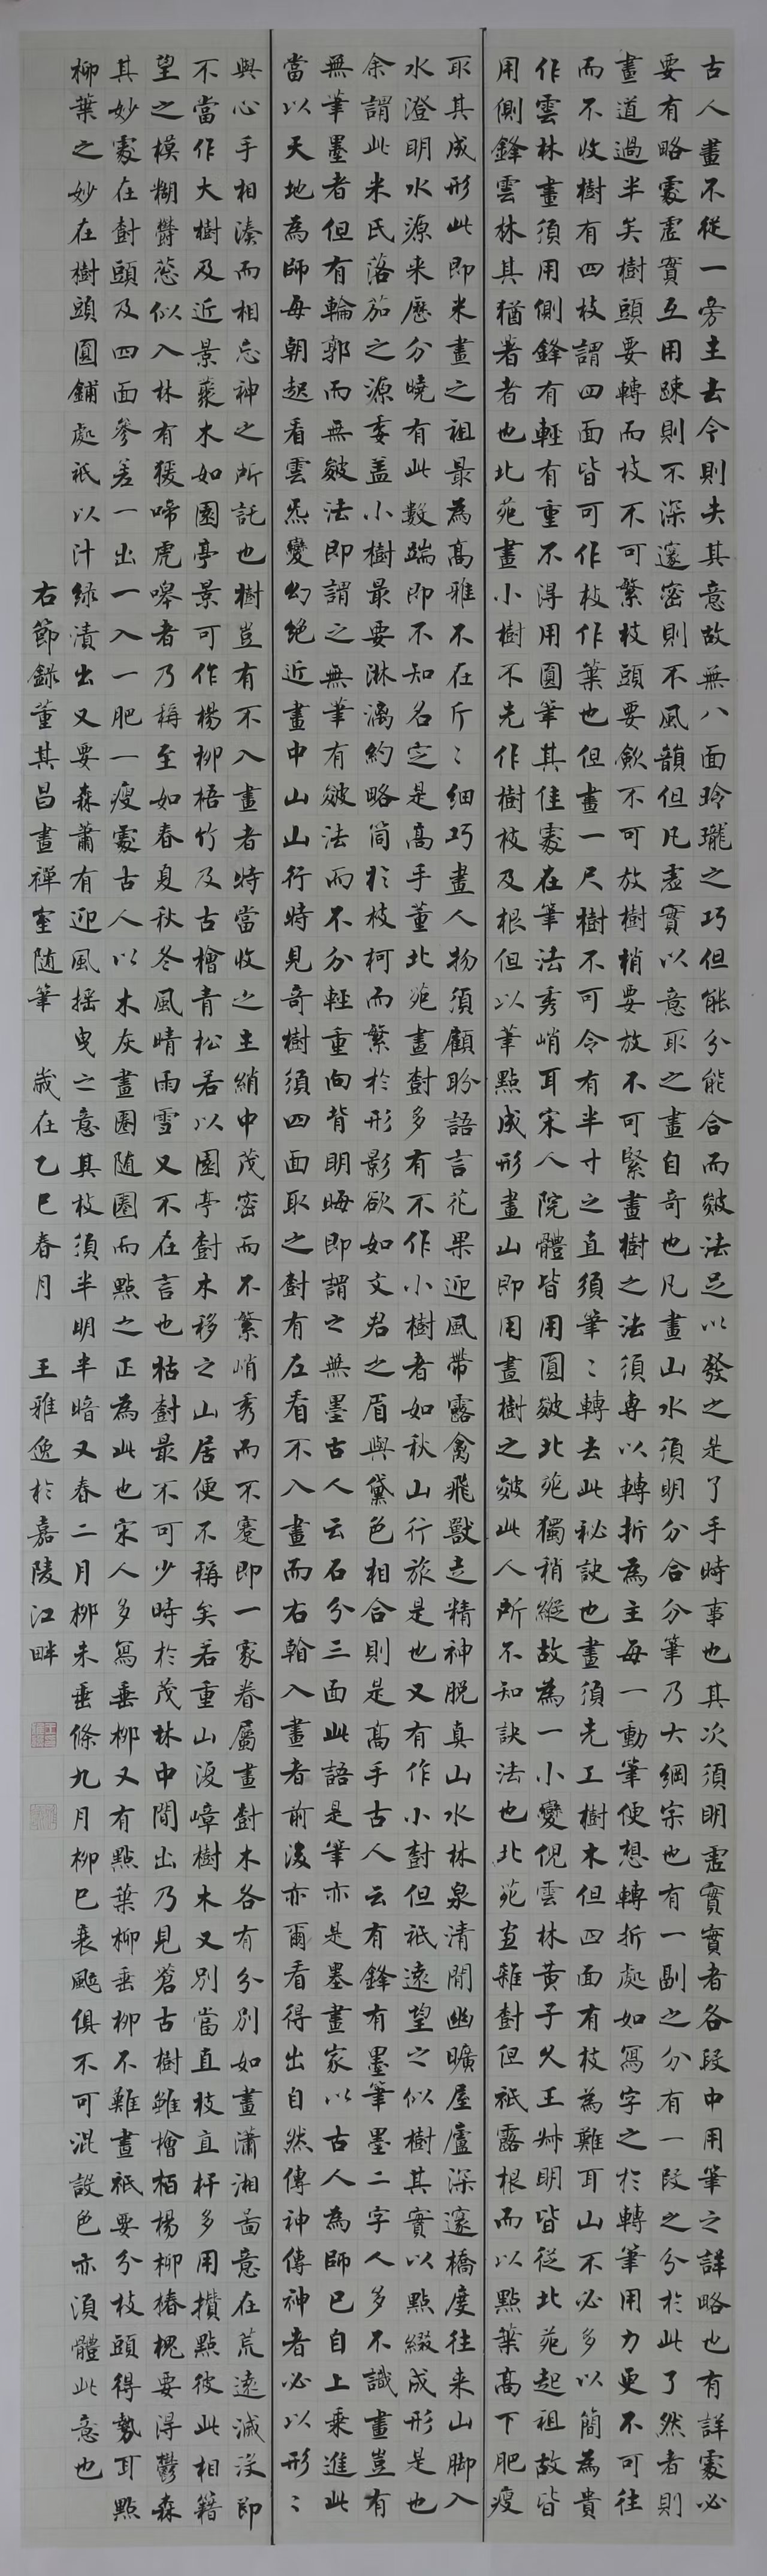 古人畫不從一旁主去今則夫其意故無八面玲瓏之巧但能分能合而皴法足以發之是了手時事也其次須明虛實實者各段中用筆之詳略也有詳處必
要有略處虛實互用疎則不深邃密則不風韻但凡虛實以意取之畫自奇也凡畫山水須明分合分筆乃大綱宗也有一副之分有一段之分於此了然者則
畫道過半矣樹頭要轉而枝不可繁枝頭要斂不可放樹梢要放不可緊畫樹之法須專以轉折為主每一動筆便想轉折處如寫字之於轉筆用力更不可往
而不收樹有四枝謂四面皆可作枝作葉也但畫一尺樹不可令有半寸之直須筆〻轉去此秘訣也畫須先工樹木但四面有枝為難耳山不必多以簡為貴
作雲林畫須用側鋒有輕有重不得用圓筆其佳處在筆法秀峭耳宋人院體皆用圓皴北苑獨稍縱故為一小變倪雲林黃子久王叔明皆從北苑起祖故皆
用側鋒雲林其猶著者也北苑畫小樹不先作樹枝及根但以筆點成形畫山即用畫樹之皴此人所不知訣法也北苑画雜樹但祇露根而以點葉高下肥瘦
取其成形此即米畫之祖最為高雅不在斤〻細巧畫人物須顧盼語言花果迎風帶露禽飛獸走精神脫真山水林泉清閒幽曠屋廬深邃橋度往来山脚入
水澄明水源来歷分曉有此數端即不知名定是高手董北苑畫樹多有不作小樹者如秋山行旅是也又有作小樹但祇遠望之似樹其實以點綴成形是也
余謂此米氏落茄之源委盖小樹最要淋漓約略簡於枝柯而繁於形影欲如文君之眉與黛色相合則是高手古人云有鋒有墨筆墨二字人多不識畫豈有
無筆墨者但有輪郭而無皴法即謂之無筆有皴法而不分輕重向背明晦即謂之無墨古人云石分三面此語是筆亦是墨畫家以古人為師已自上乘進此
當以天地為師每朝起看雲炁變幻絕近畫中山山行時見奇樹須四面取之樹有左看不入畫而右翰入畫者前後亦爾看得出自然傳神傳神者必以形〻
與心手相湊而相忘神之所託也樹豈有不入畫者特當收之主綃中茂密而不繁峭秀而不蹇即一家眷屬畫樹木各有分別如畫瀟湘啚意在荒遠滅沒即
不當作大樹及近景叢木如園亭景可作楊柳梧竹及古檜青松若以園亭樹木移之山居便不稱矣若重山複嶂樹木又別當直枝直杆多用攢點彼此相籍
望之模糊鬱葱似入林有猨啼虎嗥者乃稱至如春夏秋冬風晴雨雪又不在言也枯樹最不可少時於茂林中間出乃見蒼古樹雖檜栢楊柳椿槐要得鬱森
其妙處在樹頭及四面參差一出一入一肥一瘦處古人以木灰畫圈随圈而點之正為此也宋人多寫垂柳又有點葉柳垂柳不難畫祇要分枝頭得勢耳點
柳葉之妙在樹頭圓鋪處祇以汁綠漬出又要森蕭有迎風摇曳之意其枝須半明半暗又春二月柳未垂條九月柳已衰颯俱不可混設色亦須體此意也
右節錄董其昌畫禪室随筆 歲在乙巳春月 王雅逸於嘉陵江畔